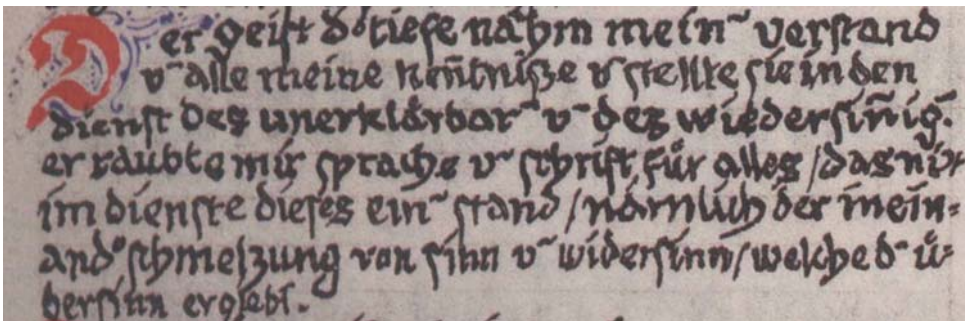 Der geist d° tiefe nahm mein‾ verstand
v‾ alle meine ken̄tniße v‾ stellte sie in den
dienst des unerklårbar‾ v‾ des wiedersin̄ig‾.
er raubte mir sprache v‾ schrift får alles / das nit
im dienste dieses ein‾ stand / nåmlich der inein=
and° schmelzung von sinn v‾ widersinn / welche d‾ ů=
bersinn ergiebt.